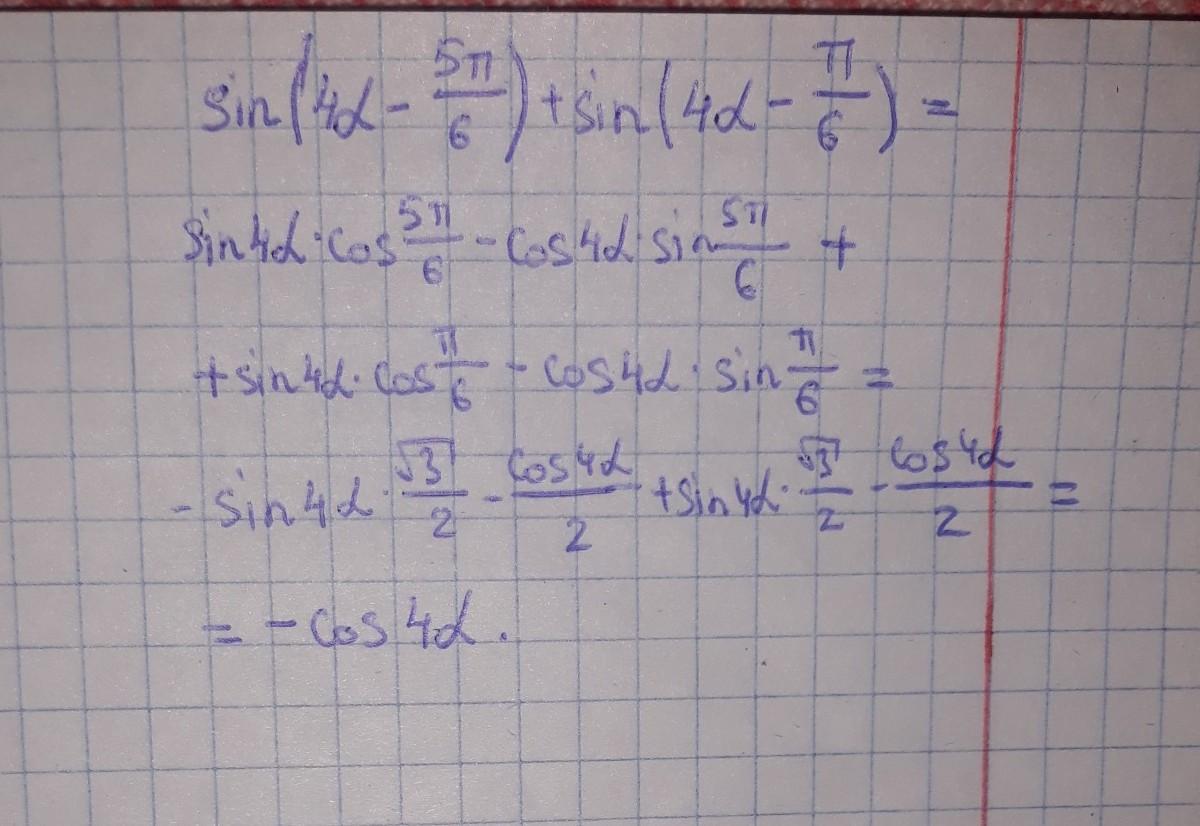 sin(4α - 5π/6) + sin(4α - π/6) =
sin4α · cos 5π/6 - cos4α · sin 5π/6 +
+ sin4α · cos π/6 - cos4α · sin π/6 =
- sin4α · √3/2 - cos4α/2 + sin4α · √3/2 - cos4α/2 =
= - cos4α.